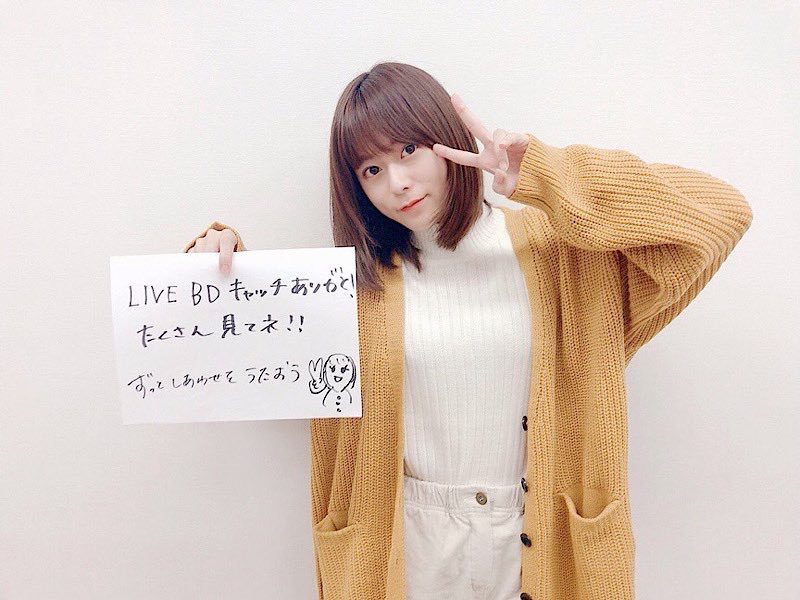 LIVE BD キャッチありがと!
たくさん見てネ!!
ずっと しあわせを うたおう